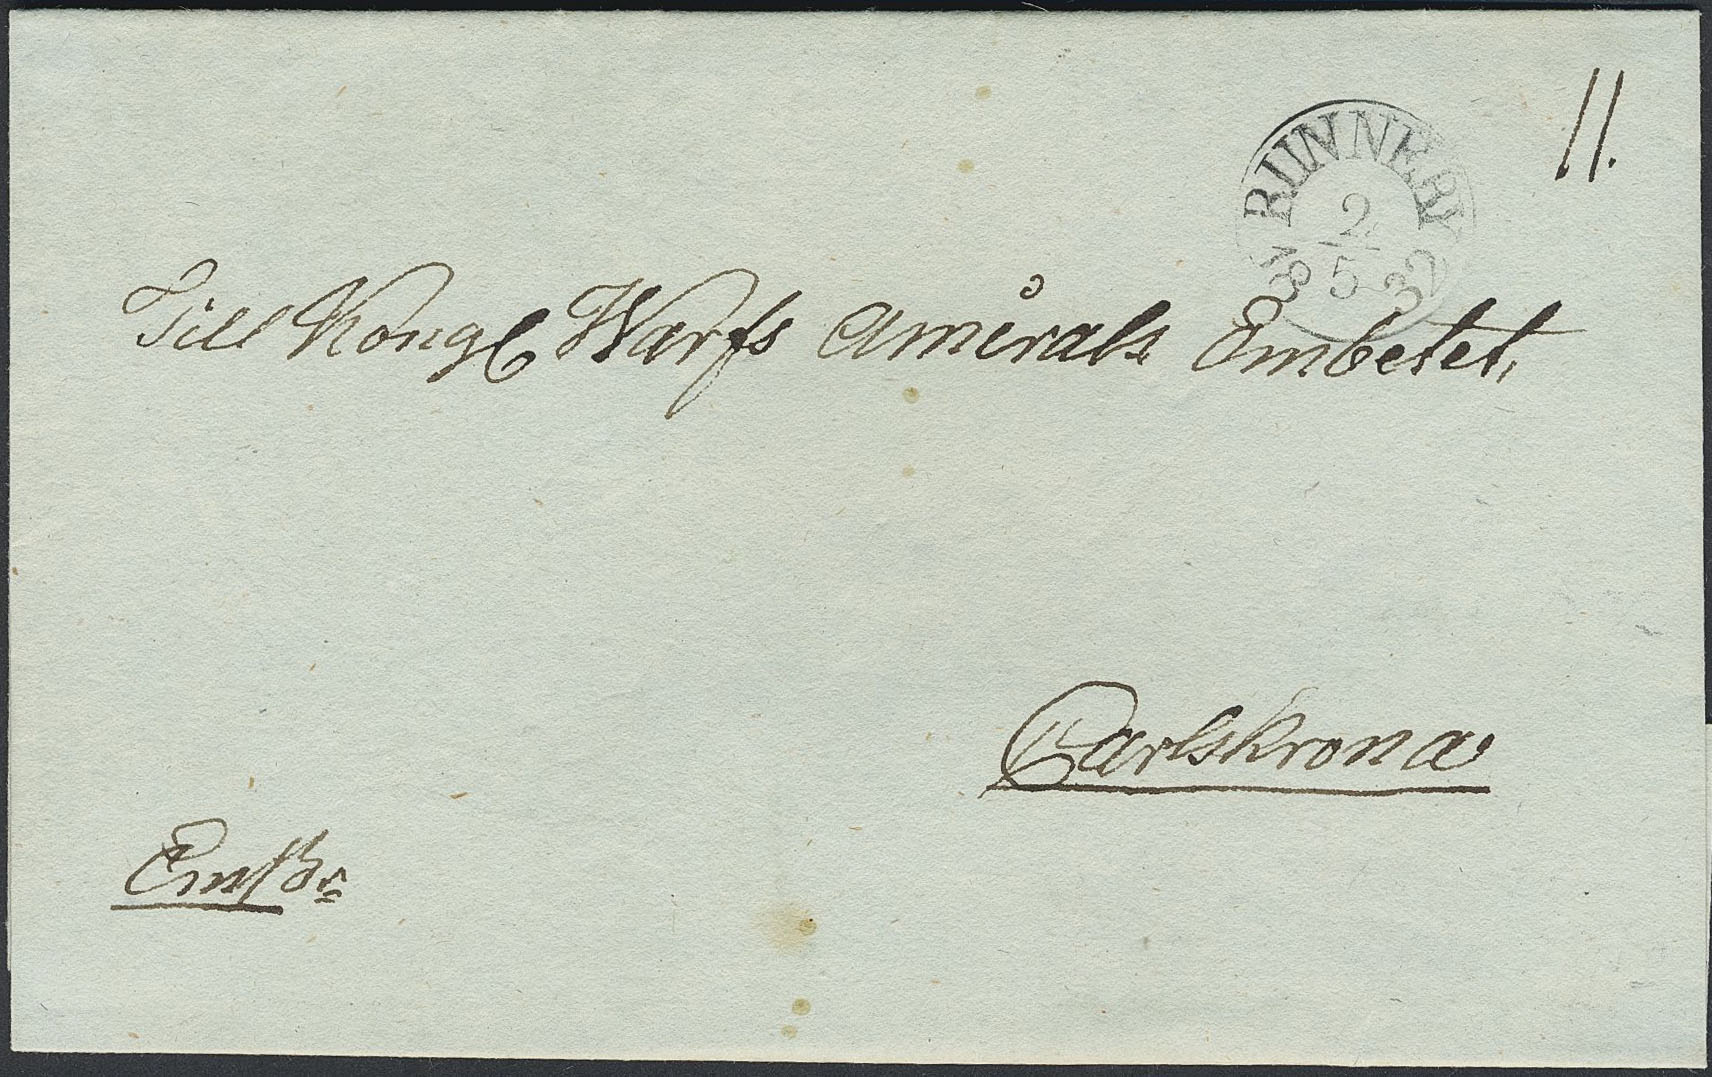 11.
RUNNEBY
2
5
1832
Till Kongl Warfs Amirals Embetet,
Carlskrona